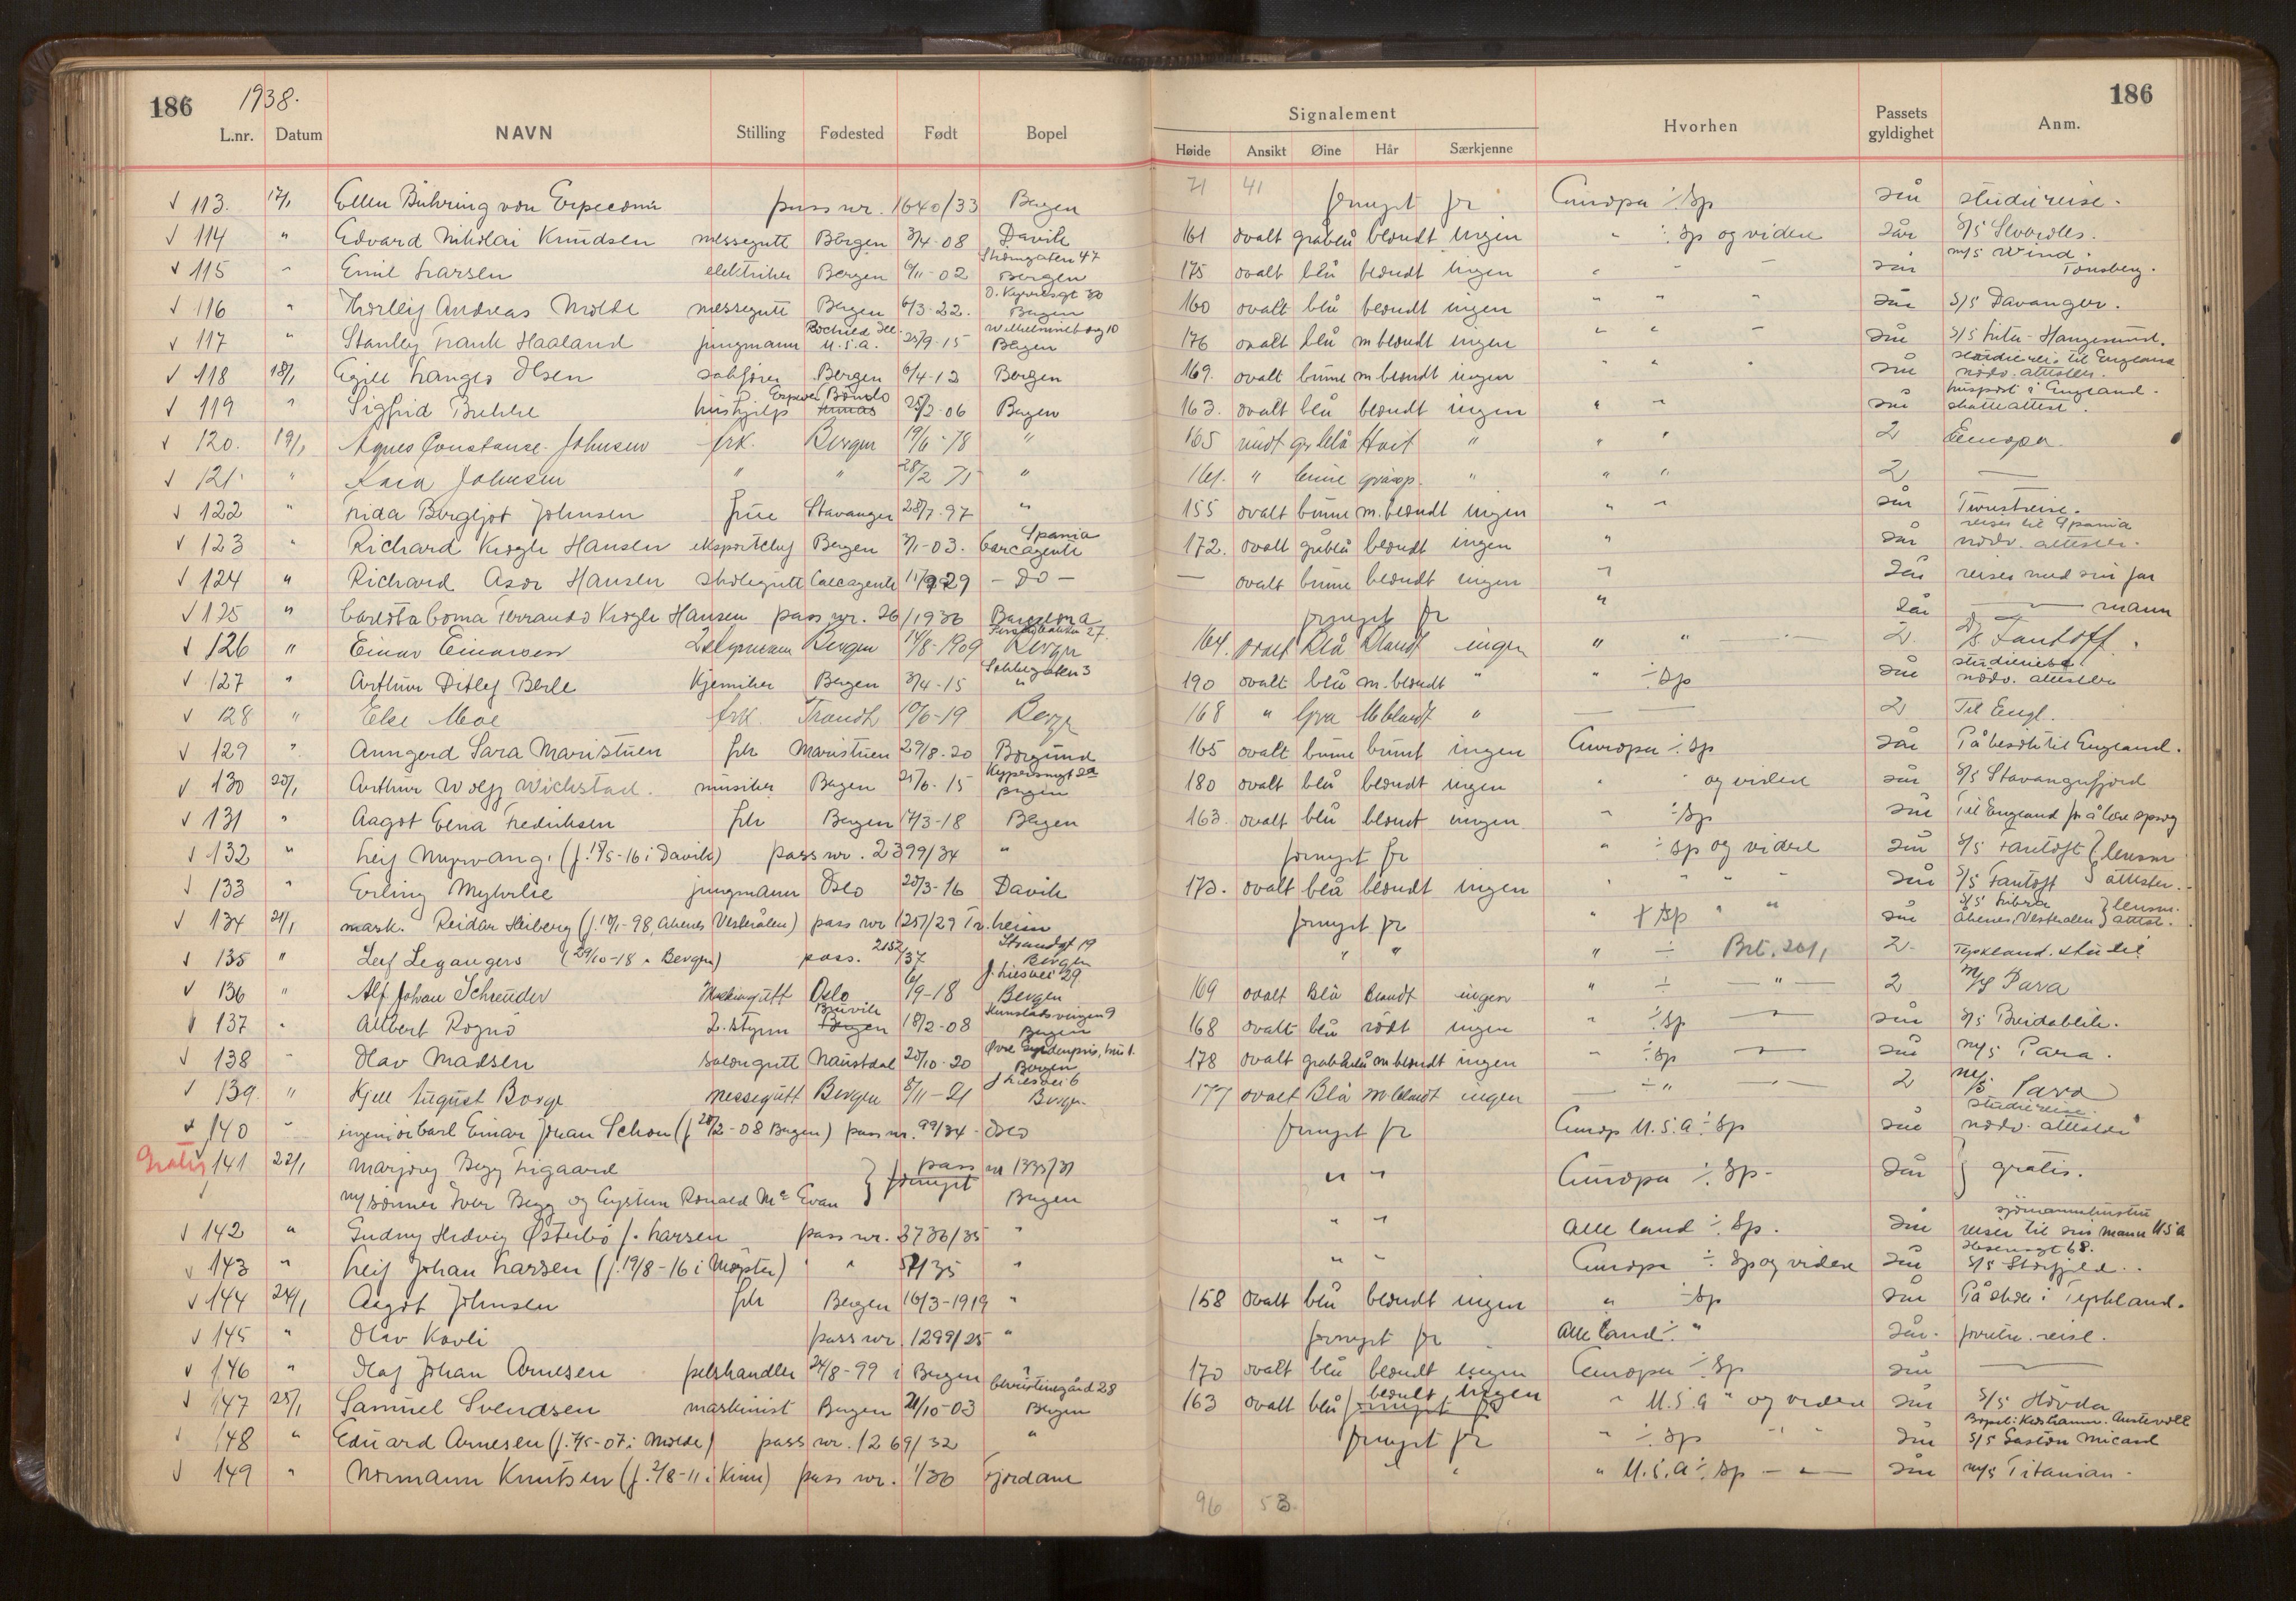 186 1938. 186
Signalement
L.nr. Datum NAVN Stilling Fødested Født Bopel Høide Ansikt Øine Hår Særkjenne Hvorhen Passets gyldighet Anm.
71 41
113. 17/1 Ellen Bühring von pass nr. 1640/33 Bergen fornyet for Europa ÷ Sp 2 år studiereise.
114 " Edvard Nikolai Knudsen messegutt Bergen 3/4-08 Davik 161 ovalt gråblå blondt ingen " ÷ Sp og videre 2 år S/S
Strømgaten 47
115 " Emil Larsen elektriker Bergen 6/11-02 Bergen 175 ovalt blå blondt ingen " - - 2 år m/s Wind. Tønsberg.
116 " Thorleif Andreas Molde messegutt Bergen 6/3-22. Bergen 160 ovalt blå blondt ingen " " " 2 år S/S Davanger.
Wilhelmineborg 10
117 " Stanley Frank Haaland jungmann U.S.A. 25/9-15 Bergen 176 ovalt blå m blondt ingen " " - 2 år S/S - Haugesund.
118 18/1 Egill Langes Olsen Bergen 6/4-13 Bergen 169. ovalt brune m blondt ingen " " " 2 år studiereis til England nødv. attester.
119 " Sigfrid hushjelp 25/2-06 Bergen 163. ovalt blå blondt ingen " " 2 år huspost i England. skatteattest.
120. 19/1 Agnes Constance Johnsen frk. Bergen 19/6-78 " 165 rundt gr blå Hvit " " " 2 Europa.
121. " Kaia Johnsen " " 28/2 75 " 161. " brune gråsp. " " " 2 —
122 " Bergljot Johnsen frue Stavanger 28/7-97 " 155 ovalt brune m. blondt ingen " " 2 år Turistreise.
123 " Richard Krogh Hansen eksportchef Bergen 7/1-03. Spania Carcagente 172. ovalt gråblå blondt ingen " 2 år reiser til Spania nødv. attester.
124 " Richard Asor Hansen skolegutt Carcagente 11/9 29 - do - — ovalt brune blondt ingen " 2 år reiser med sin far
125 " Carlota Coma Ferrando Krogh Hansen pass nr. 26/1936 Barcelona fornyet for " 2 år — mann
126 " Einar Einarsen Bergen 14/8-1909 Bergen 164. ovalt Blå Blondt ingen " " 2. D/S Fantoft.
127 " Arthur Ditlef Berle Kjemiker Bergen 3/4-15 " 190 ovalt blå m. blondt " " ÷ Sp 2 år studiereise nødv. attester
128 " Else Moe frk. Trondh 10/6-19 Bergen 168 " Grå M blondt " — — 2 Til Engl.
129 " Anngerd Sara Maristuen frk Maristuen 29/8-20 Borgund 165 ovalt brune brunt ingen Europa ÷ Sp 2 år På besøk til England.
130 20/1 Arthur Wolff Wichstad. musiker Bergen 21/6-15 Bergen 180 ovalt blå blondt ingen " " og videre 2 år S/S Stavangerfjord
131 " Aagot Elna Fredriksen frk Bergen 14/3-18 Bergen 163. ovalt blå blondt ingen " ÷ Sp 2 år Til England for å lære sprog
132 " Leif Myrvang. (f. 18/5-16 i Davik) pass nr. 2399/34 " fornyet for " ÷ Sp og videre 2 år S/S Fantoft } lensm
133 " Erling Myklelie jungmann Oslo 20/3-16 Davik 173. ovalt blå blondt ingen " " " " 2 år S/S Fantoft } attester.
134 21/1 mask. Reidar Heiberg (f. 18/1-98, Vesterålen) pass nr 1257/29 Tr.heim fornyet for " ÷ Sp " " 2 år Vesterålen } lensm. attest.
Strandgt 19
135 " Leif Legangers (29/10-18 i Bergen) pass. 2152/37 Bergen " " " ÷ 2 Tyskland.
136 " Alf Johan Schrøuder Oslo 6/9-18 Bergen 169 ovalt Blå Blondt ingen " ÷ — " — 2 M/S Para
137 " Albert Rognø 2. styrm Bruvik Bergen 18/2-08 Bergen 168 ovalt blå rødt ingen " ÷ Sp — 2 år S/S Breidablik.
138 " Olav Madsen salongutt Naustdal 20/10-20 Bergen 178 ovalt gråblå m blondt ingen " ÷ Sp — 2 år M/S Para.
139. " Kjell August Borge messegutt Bergen 8/11-21 Bergen 177 ovalt Blå m blondt ingen — ÷ " — 2 M/S Para
140 " ingeniør Carl Einar Johan Schou (f 28/2-08 Bergen) pass nr. 99/34 - Oslo fornyet for Europ U.S.A ÷ Sp 2 år studiereise. nødv. attester
Gratis 141 22/1 Marjory Begg Ligaard } pass nr 1335/31 " " Europa ÷ Sp - 2 år } gratis.
m/sønner Iver Begg og Eystein Ronald Mc Evan } fornyet Bergen
142 " Gudny Hedvig Østerbø f. Larsen pass nr. 3736/35 " " " Alle land ÷ Sp. 2 år reiser til sin mann U S A
143 " Leif Johan Larsen (f. 19/8-16 i Møgster) " " 57/35 " " " Europa ÷ Sp og videre 2 år S/S Storfjeld..
144 24/1 Aagot Johnsen frk Bergen 16/3-1919 " 158 ovalt blå blondt ingen " ÷ Sp 2 år På skole i Tyskland.
145 " Olav Kavli pass nr. 1299/25 " fornyet for Alle land ÷ " 2 år. forretn. reise.
146 " Olaf Johan Arnesen pelshandler 24/8-99 i Bergen " 170 ovalt blå blondt ingen Europa ÷ Sp 2 år —
147 25/1 Samuel Svendsen maskinist Bergen 21/10-03 Christinegård 28 Bergen 163 ovalt blå blondt, ingen fornyet for " U.S.A " og videre 2 år S/S Hovda
148 " Eduard Arnesen (f. 7/5-07 i Molde) pass nr. 1269/32 " fornyet for " ÷ Sp " " 2 år S/S Gaston Micard
149 " Normann Knutsen (f. 2/8-11 i Kinn) pass nr. 1/36 Fjordane " " " U.S.A ÷ Sp - " - 2 år M/S Titanian.
96 53.